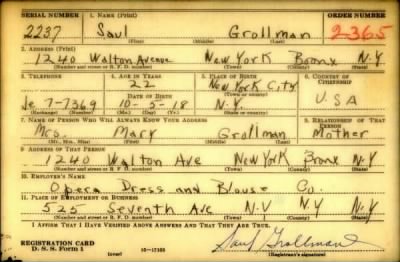 SERIAL NUMBER 1. NAME (Print) ORDER NUMBER
2237 Saul Grollman 2365
(First) (Middle) (Last)
2. ADDRESS (Print)
1240 Walton Avenue New York Bronx N.Y
(Number and street or R. F. D. number) (Town) (County) (State)
3. TELEPHONE 4. AGE IN YEARS 5. PLACE OF BIRTH 6. COUNTRY OF CITIZENSHIP
22 New York City
DATE OF BIRTH (Town or county)
Je 7-7369 10-5-18 N.Y. USA
(Exchange) (No.) (Mo.) (Day) (Yr.) (State or country)
7. NAME OF PERSON WHO WILL ALWAYS KNOW YOUR ADDRESS 8. RELATIONSHIP OF THAT PERSON
Mrs. Mary Grollman Mother
(Mr., Mrs., Miss) (First) (Middle) (Last)
9. ADDRESS OF THAT PERSON
1240 Walton Ave New York Bronx N-Y
(Number and street or R. F. D. number) (Town) (County) (State)
10. EMPLOYER'S NAME
Opera Dress and Blouse Co.
11. PLACE OF EMPLOYMENT OR BUSINESS
525 Seventh Ave N-Y N.Y N-Y
(Number and street or R. F. D. number) (Town) (County) (State)
I AFFIRM THAT I HAVE VERIFIED ABOVE ANSWERS AND THAT THEY ARE TRUE.
REGISTRATION CARD
D. S. S. Form 1 (over) Saul Grollman
(Registrant's signature)